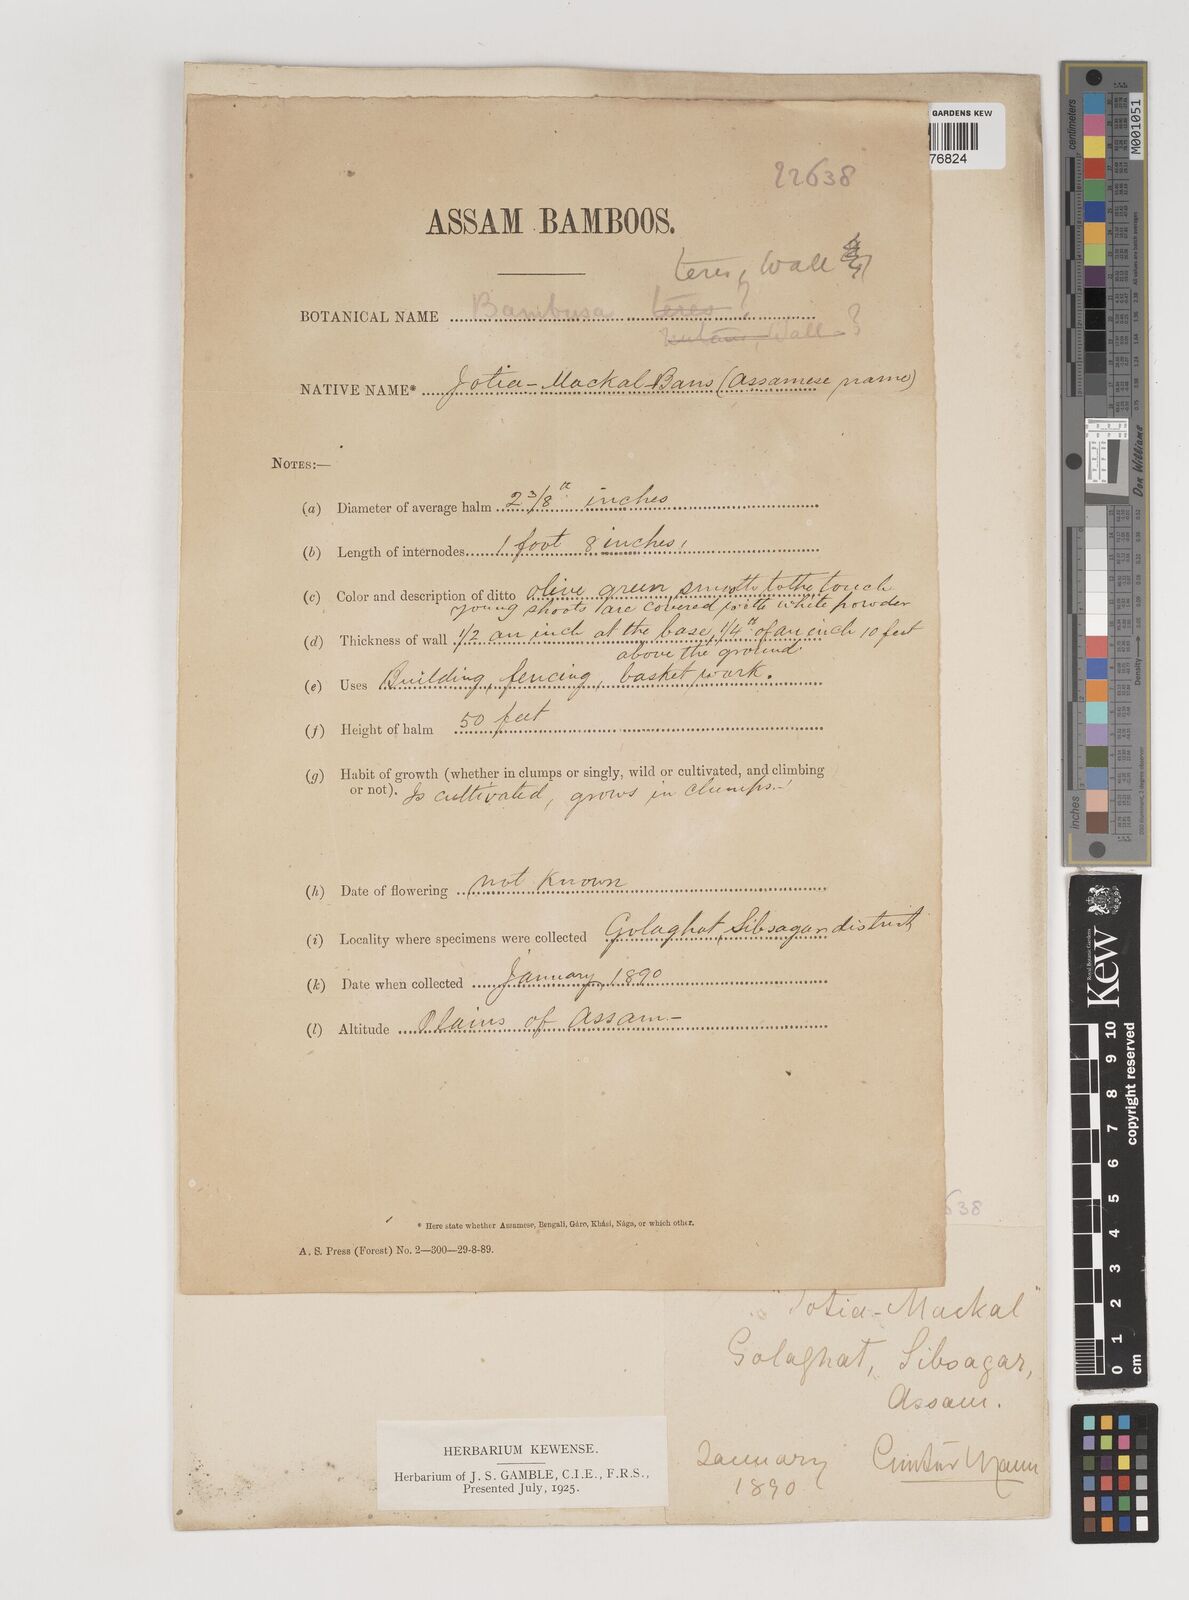 GARDENS KEW
76824
22638
ASSAM BAMBOOS.
teres, Wall
BOTANICAL NAME Bambusa teres ?
nutans, Wall ?
NATIVE NAME* Jotia-Mackal Bans (Assamese name)
NOTES:—
(a) Diameter of average halm 2 3/8th inches
(b) Length of internodes 1 foot 8 inches,
(c) Color and description of ditto olive green, smooth to the touch
young shoots are covered with white powder
(d) Thickness of wall 1/2 an inch at the base, 1/4th of an inch 10 feet
above the ground
(e) Uses Building, fencing, basket work.
(f) Height of halm 50 feet
(g) Habit of growth (whether in clumps or singly, wild or cultivated, and climbing
or not). Is cultivated, grows in clumps.—
(h) Date of flowering not known
(i) Locality where specimens were collected Golaghat, Sibsagar district
(k) Date when collected January, 1890
(l) Altitude Plains of Assam—
* Here state whether Assamese, Bengali, Gáro, Khási, Nága, or which other.
A. S. Press (Forest) No. 2—300—29-8-89.
638
"Jotia-Mackal"
Golaghat, Sibsagar,
Assam.
January Gustav Mann
1890
HERBARIUM KEWENSE.
Herbarium of J. S. GAMBLE, C.I.E., F.R.S.,
Presented July, 1925.
centimeters
M001051
Don Williams
inches
Density
Royal Botanic Gardens
Kew
0 1 2 3 4 5 6 7 8 9 10
cm
copyright reserved